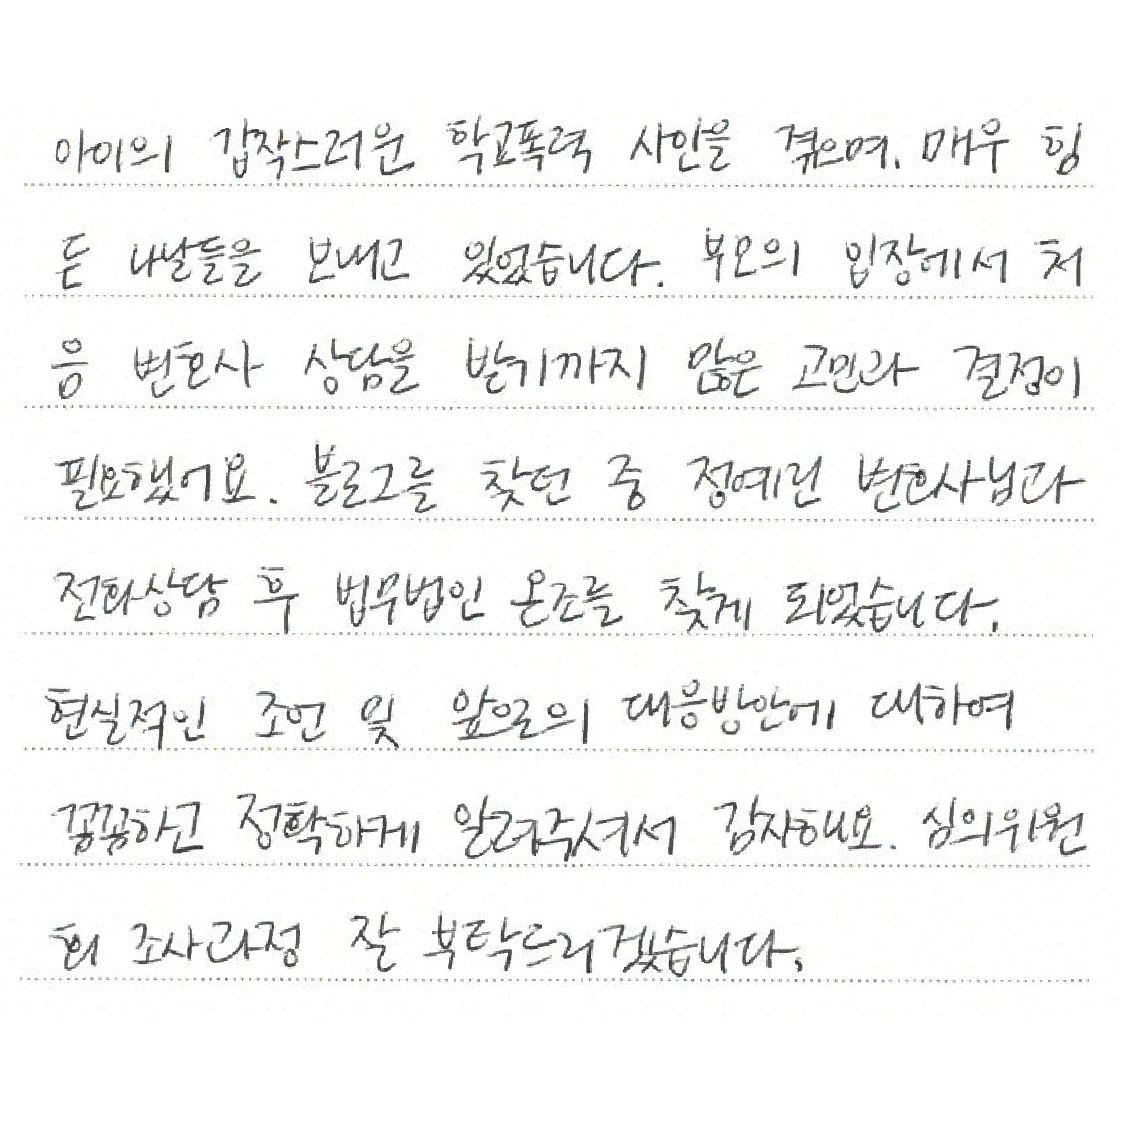 아이의 갑작스러운 학교폭력 사안을 겪으며, 매우 힘
든 나날들을 보내고 있었습니다. 부모의 입장에서 처
음 변호사 상담을 받기까지 많은 고민과 결정이
필요했어요. 블로그를 찾던 중 정예린 변호사님과
전화상담 후 법무법인 온조를 찾게 되었습니다.
현실적인 조언 및 앞으로의 대응방안에 대하여
꼼꼼하고 정확하게 알려주셔서 감사해요. 심의위원
회 조사과정 잘 부탁드리겠습니다.